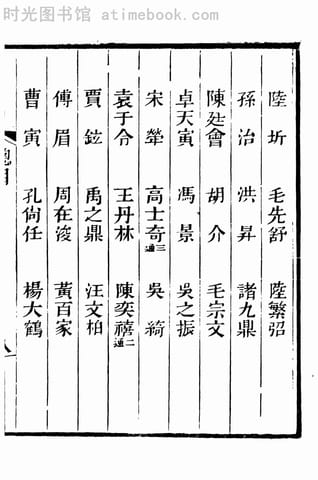 时光图书馆 www.atimebook.com
陸圻 毛先舒 陸繁弨
孫治 洪昇 諸九鼎
陳廷會 胡介 毛宗文
卓天寅 馮景 吳之振
宋犖 高士奇三通 吳綺
袁于令 王丹林 陳奕禧二通
賈鉝 禹之鼎 汪文柏
傅眉 周在浚 黃百家
曹寅 孔尙任 楊大鶴
總目
八